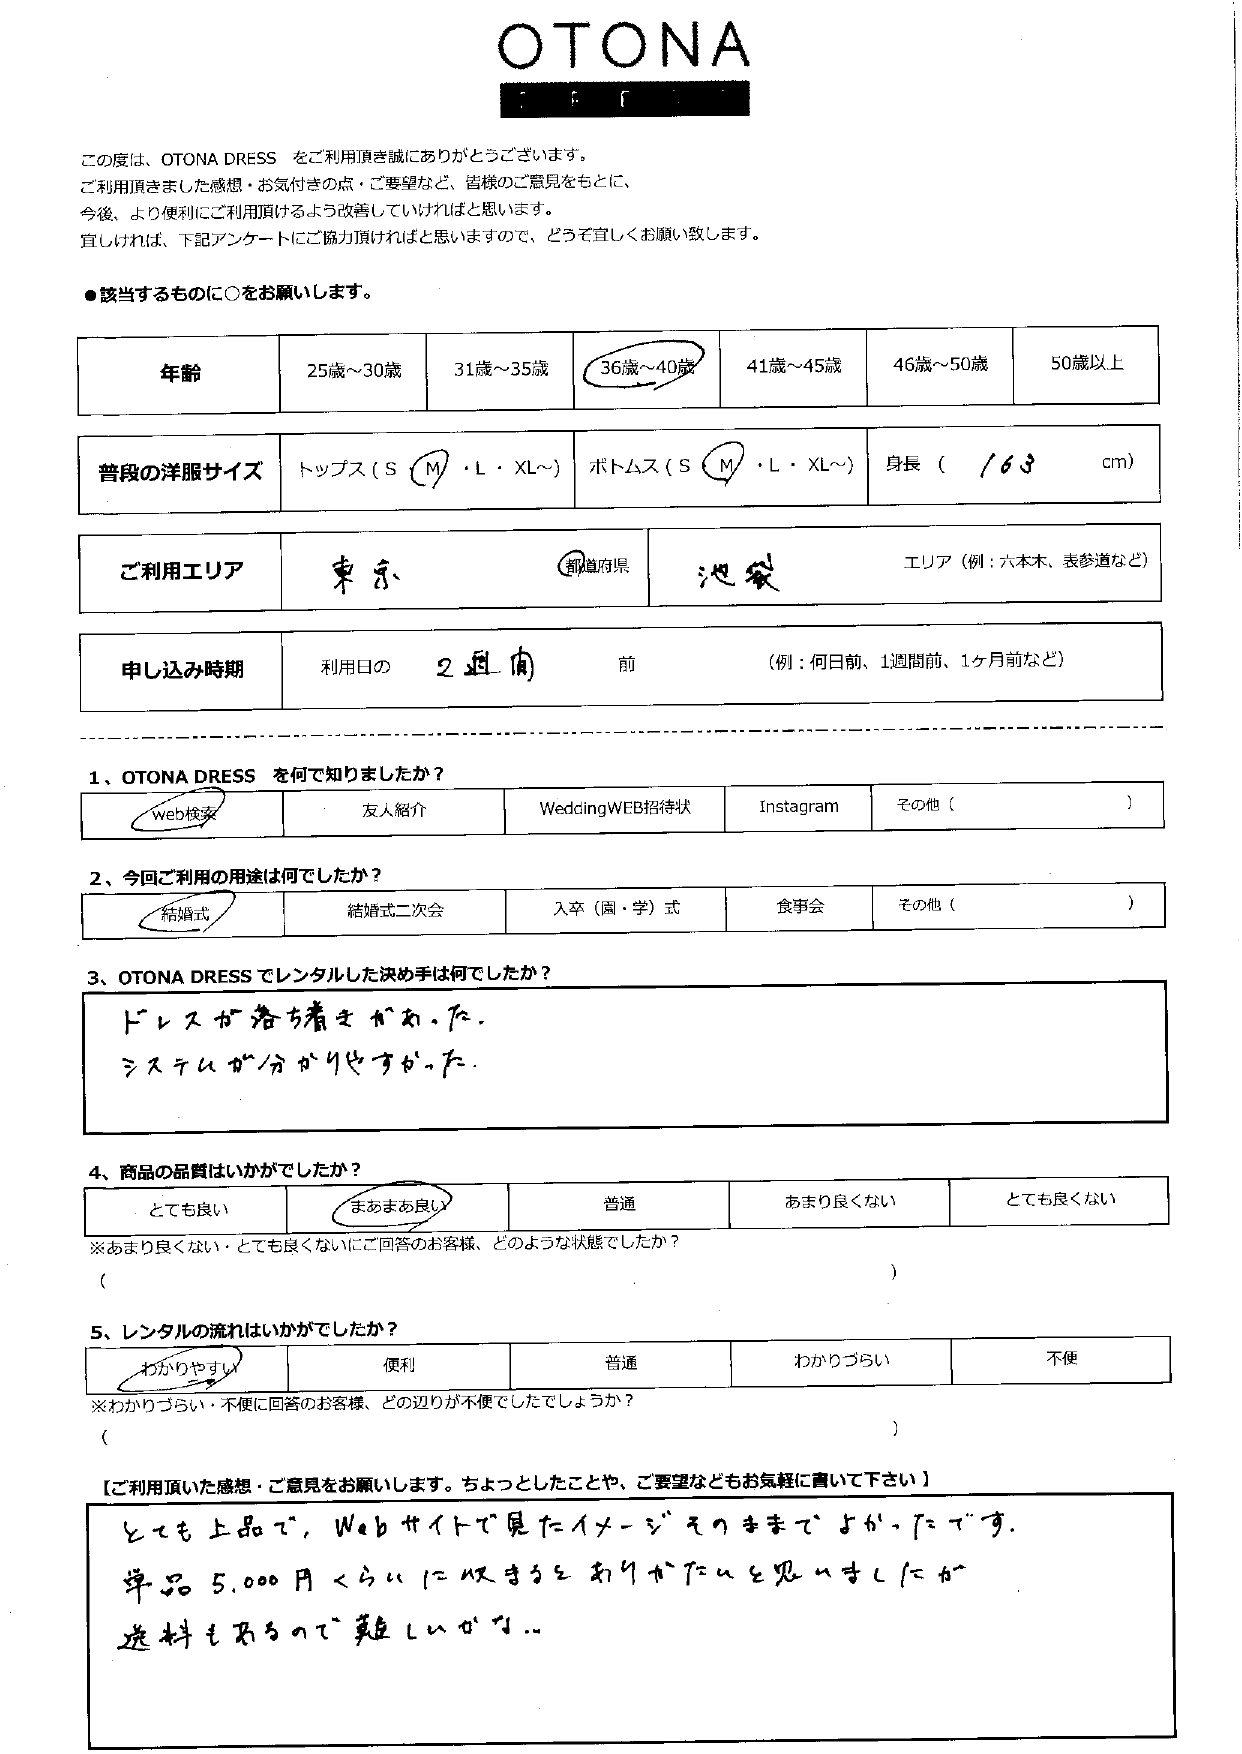 OTONA
この度は、OTONA DRESS　をご利用頂き誠にありがとうございます。
ご利用頂きました感想・お気付きの点・ご要望など、皆様のご意見をもとに、
今後、より便利にご利用頂けるよう改善していければと思います。
宜しければ、下記アンケートにご協力頂ければと思いますので、どうぞ宜しくお願い致します。
●該当するものに○をお願いします。
年齢 25歳～30歳 31歳～35歳 36歳～40歳 41歳～45歳 46歳～50歳 50歳以上
普段の洋服サイズ トップス ( S ・ M ・ L ・ XL～) ボトムス ( S ・ M ・ L ・ XL～) 身長 ( 163 cm)
ご利用エリア 東京 都道府県 池袋 エリア（例：六本木、表参道など）
申し込み時期 利用日の 2週間 前 （例：何日前、1週間前、1ケ月前など）
1、OTONA DRESS　を何で知りましたか？
web検索 友人紹介 WeddingWEB招待状 Instagram その他（ ）
2、今回ご利用の用途は何でしたか？
結婚式 結婚式二次会 入卒（園・学）式 食事会 その他（ ）
3、OTONA DRESSでレンタルした決め手は何でしたか？
ドレスが落ち着きがあった.
システムが分かりやすかった.
4、商品の品質はいかがでしたか？
とても良い まあまあ良い 普通 あまり良くない とても良くない
※あまり良くない・とても良くないにご回答のお客様、どのような状態でしたか？
（ ）
5、レンタルの流れはいかがでしたか？
わかりやすい 便利 普通 わかりづらい 不便
※わかりづらい・不便に回答のお客様、どの辺りが不便でしたでしょうか？
（ ）
【ご利用頂いた感想・ご意見をお願いします。ちょっとしたことや、ご要望などもお気軽に書いて下さい】
とても上品で, Webサイトで見たイメージそのままでよかったです.
単品5,000円くらいに収まるとありがたいと思いましたが
送料もあるので難しいかな..